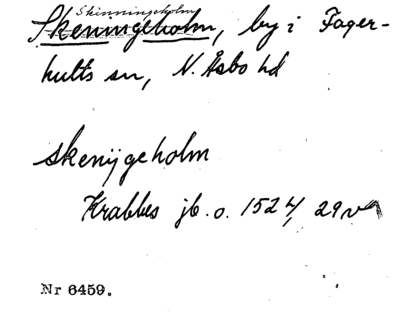 Skinningeholm
Skeningeholm, by i Fager-
hults sn, N. Åsbo hd
skenijgeholm
Krabbes jb. o. 1524, 29 v
Nr 6459.